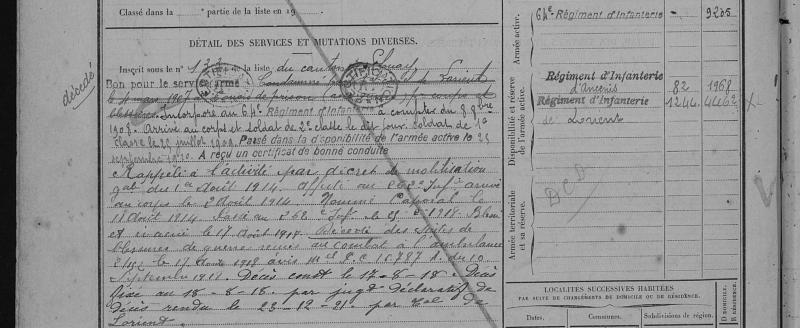 Classé dans la partie de la liste en 19
DÉTAIL DES SERVICES ET MUTATIONS DIVERSES.
Inscrit sous le n° de la liste du canton
décédé
Bon pour le service armé Condamné Lorient
le 11 mai 1907 de prison
blessures. Incorporé au 64e Régiment d'Infanterie à compter du 8 8bre
1908. Arrivé au corps et soldat de 2e classe le dit jour. Soldat de 1e
classe le 25 juillet 1909. Passé dans la disponibilité de l'armée active le 25
septembre 1910. A reçu un certificat de bonne conduite
Rappelé à l'activité par décret de mobilisation
gal du 1er Août 1914. Affecté au 262e Infie arrivé
au corps le 2 Août 1914. Nommé Caporal le
11 Août 1914. Passé au 262e Inf. le 1918. Blessé
et évacué le 17 Août 1918. Décédé des suites de
blessures de guerre reçues au combat à l'ambulance
le 17 Août 1918 avis du 10
Septembre 1918. Décès const. le 17-8-18. Décès
fixé au 18-8-18. par jugt déclaratif de
décès rendu le 23-12-21. par Tal de
Lorient.
64e Régiment d'Infanterie 9205
Armée active.
Régiment d'Infanterie
d'Ancenis 82 1968
Régiment d'Infanterie
de Lorient
Disponibilité et réserve
de l'armée active.
DCD
Armée territoriale
et sa réserve.
LOCALITÉS SUCCESSIVES HABITÉES
PAR SUITE DE CHANGEMENTS DE DOMICILE OU DE RÉSIDENCE.
Dates. Communes. Subdivisions de région.
D. DOMICILE.
R. RÉSIDENCE.